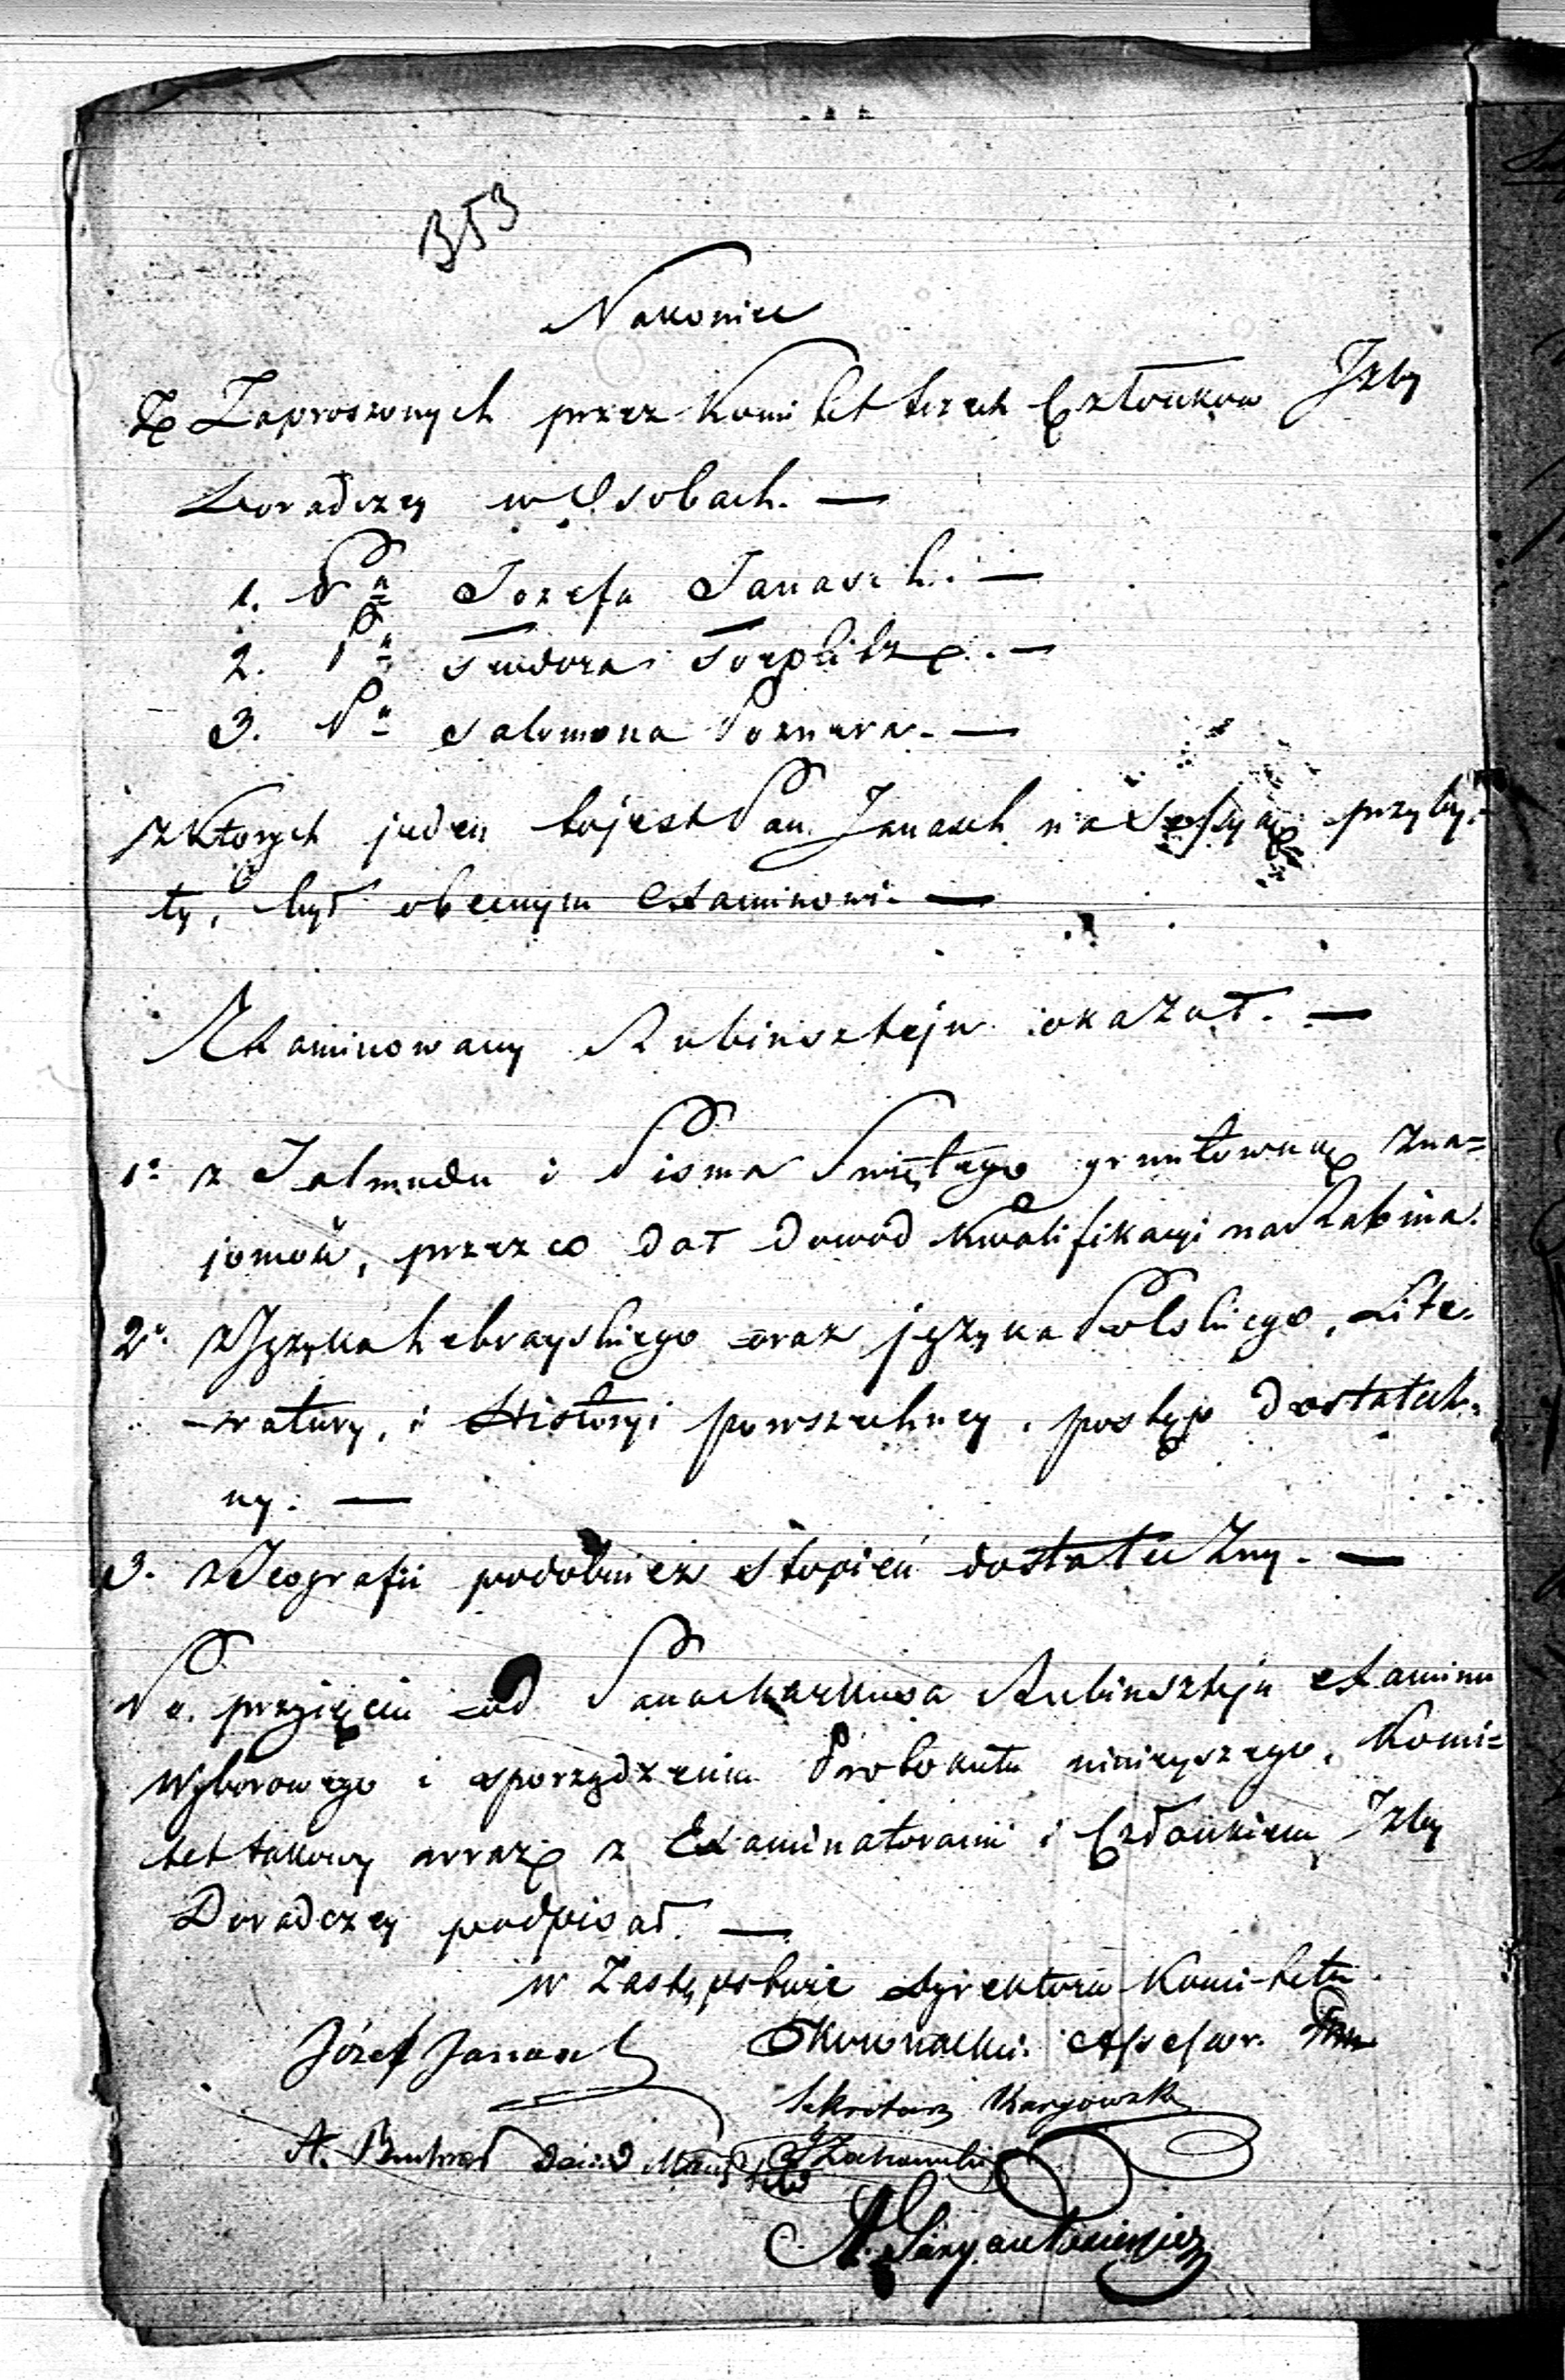 353
Nakoniec
Z Zaproszonych przez Komitet trzech Członków Jzby
Doradczey w Osobach. —
1. Pa Jozefa Janasch. —
2. Pa Teodora Toeplitz. —
3. Pa Salomona Poznera. —
z których jeden to jest Pan Janasch na Sessyą przyby-
ły, był obecnym Examinowi. —
Examinowany Rubinsztejn okazał. —
1o z Talmudu i Pisma Świętego gruntowną zna=
jomość, przez co dał dowód kwalifikacyi na Rabina.
2o z Języka hebrayskiego oraz języka Polskiego, Lite-
-ratury, i Historyi powszechney, postęp dostatecz-
ny. —
3. z Jeografii podobnież stopień dostateczny. —
Po przyjęciu od Pana Markusa Rubinsztejn examinu
Wyborowego i sporządzeniu Protokułu ninieyszego, Komi=
tet takowy wraz z Examinatorami i Członkiem Jzby
Doradczey podpisał. —
w Zastępstwie Dyrektora Komitetu
Józef Janasch Assessor.
Sekretarz
A. Dawid
A.